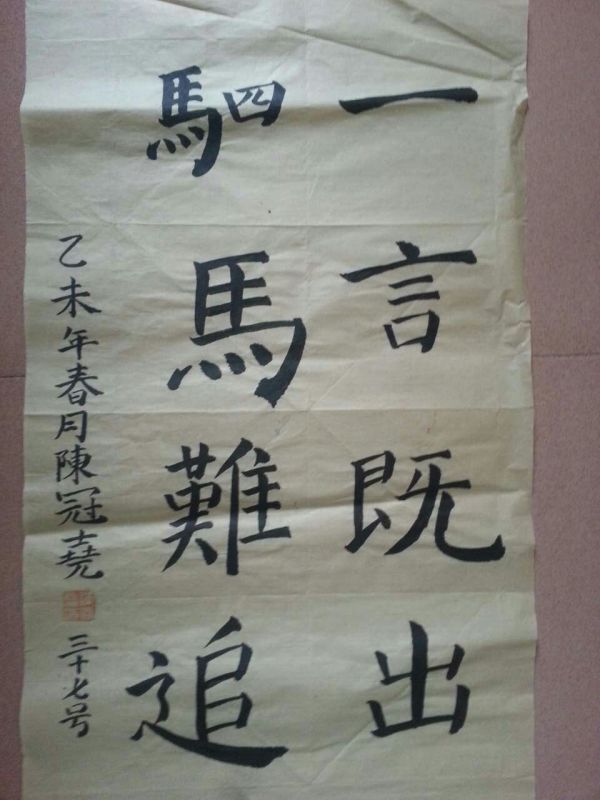 一言既出
駟馬難追
乙未年春月陳冠堯
三十七号